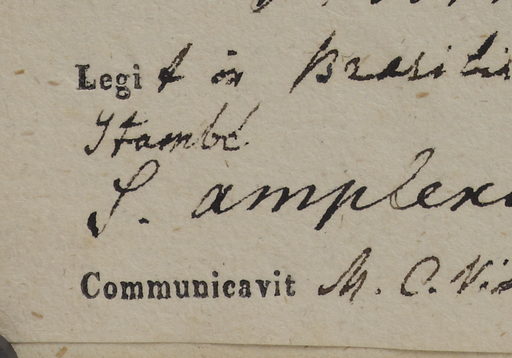 Legit in Brasili
Itambé
S. amplexi
Communicavit M. C. Vi